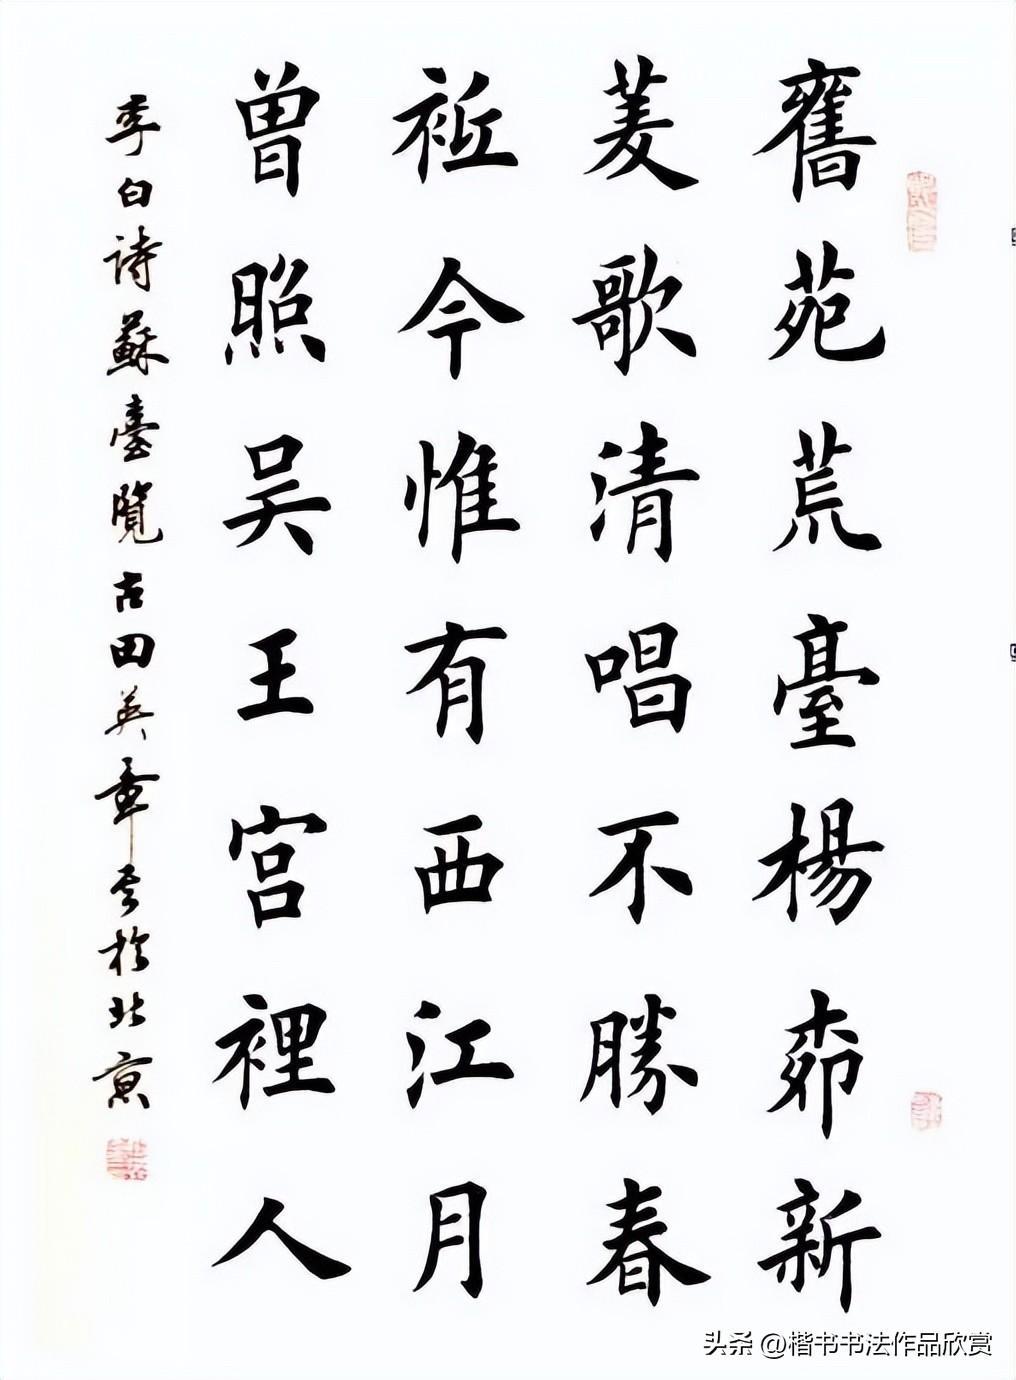 舊苑荒臺楊柳新
菱歌清唱不勝春
祗今惟有西江月
曾照吴王宫裡人
李白诗蘇臺覽古田英章书於北京
头条 @楷书书法作品欣赏